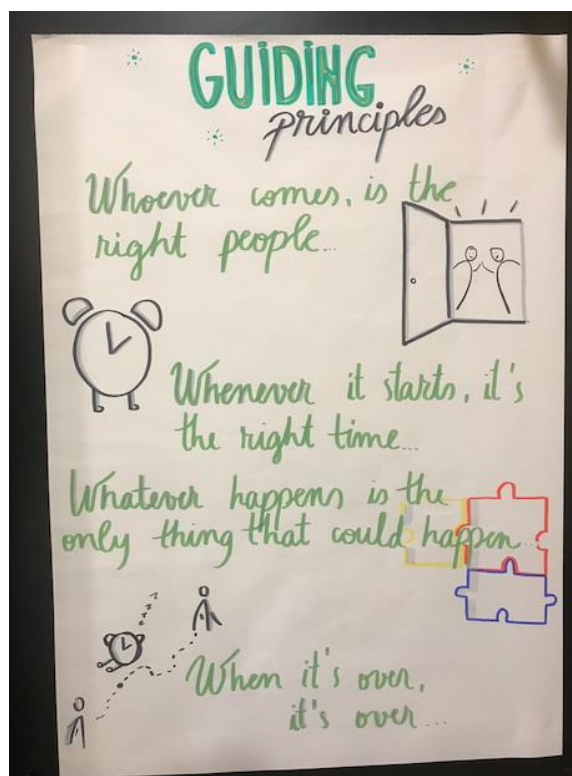 GUiDiNG
principles
Whoever comes, is the
right people...
Whenever it starts, it's
the right time...
Whatever happens is the
only thing that could happen...
When it's over,
it's over...